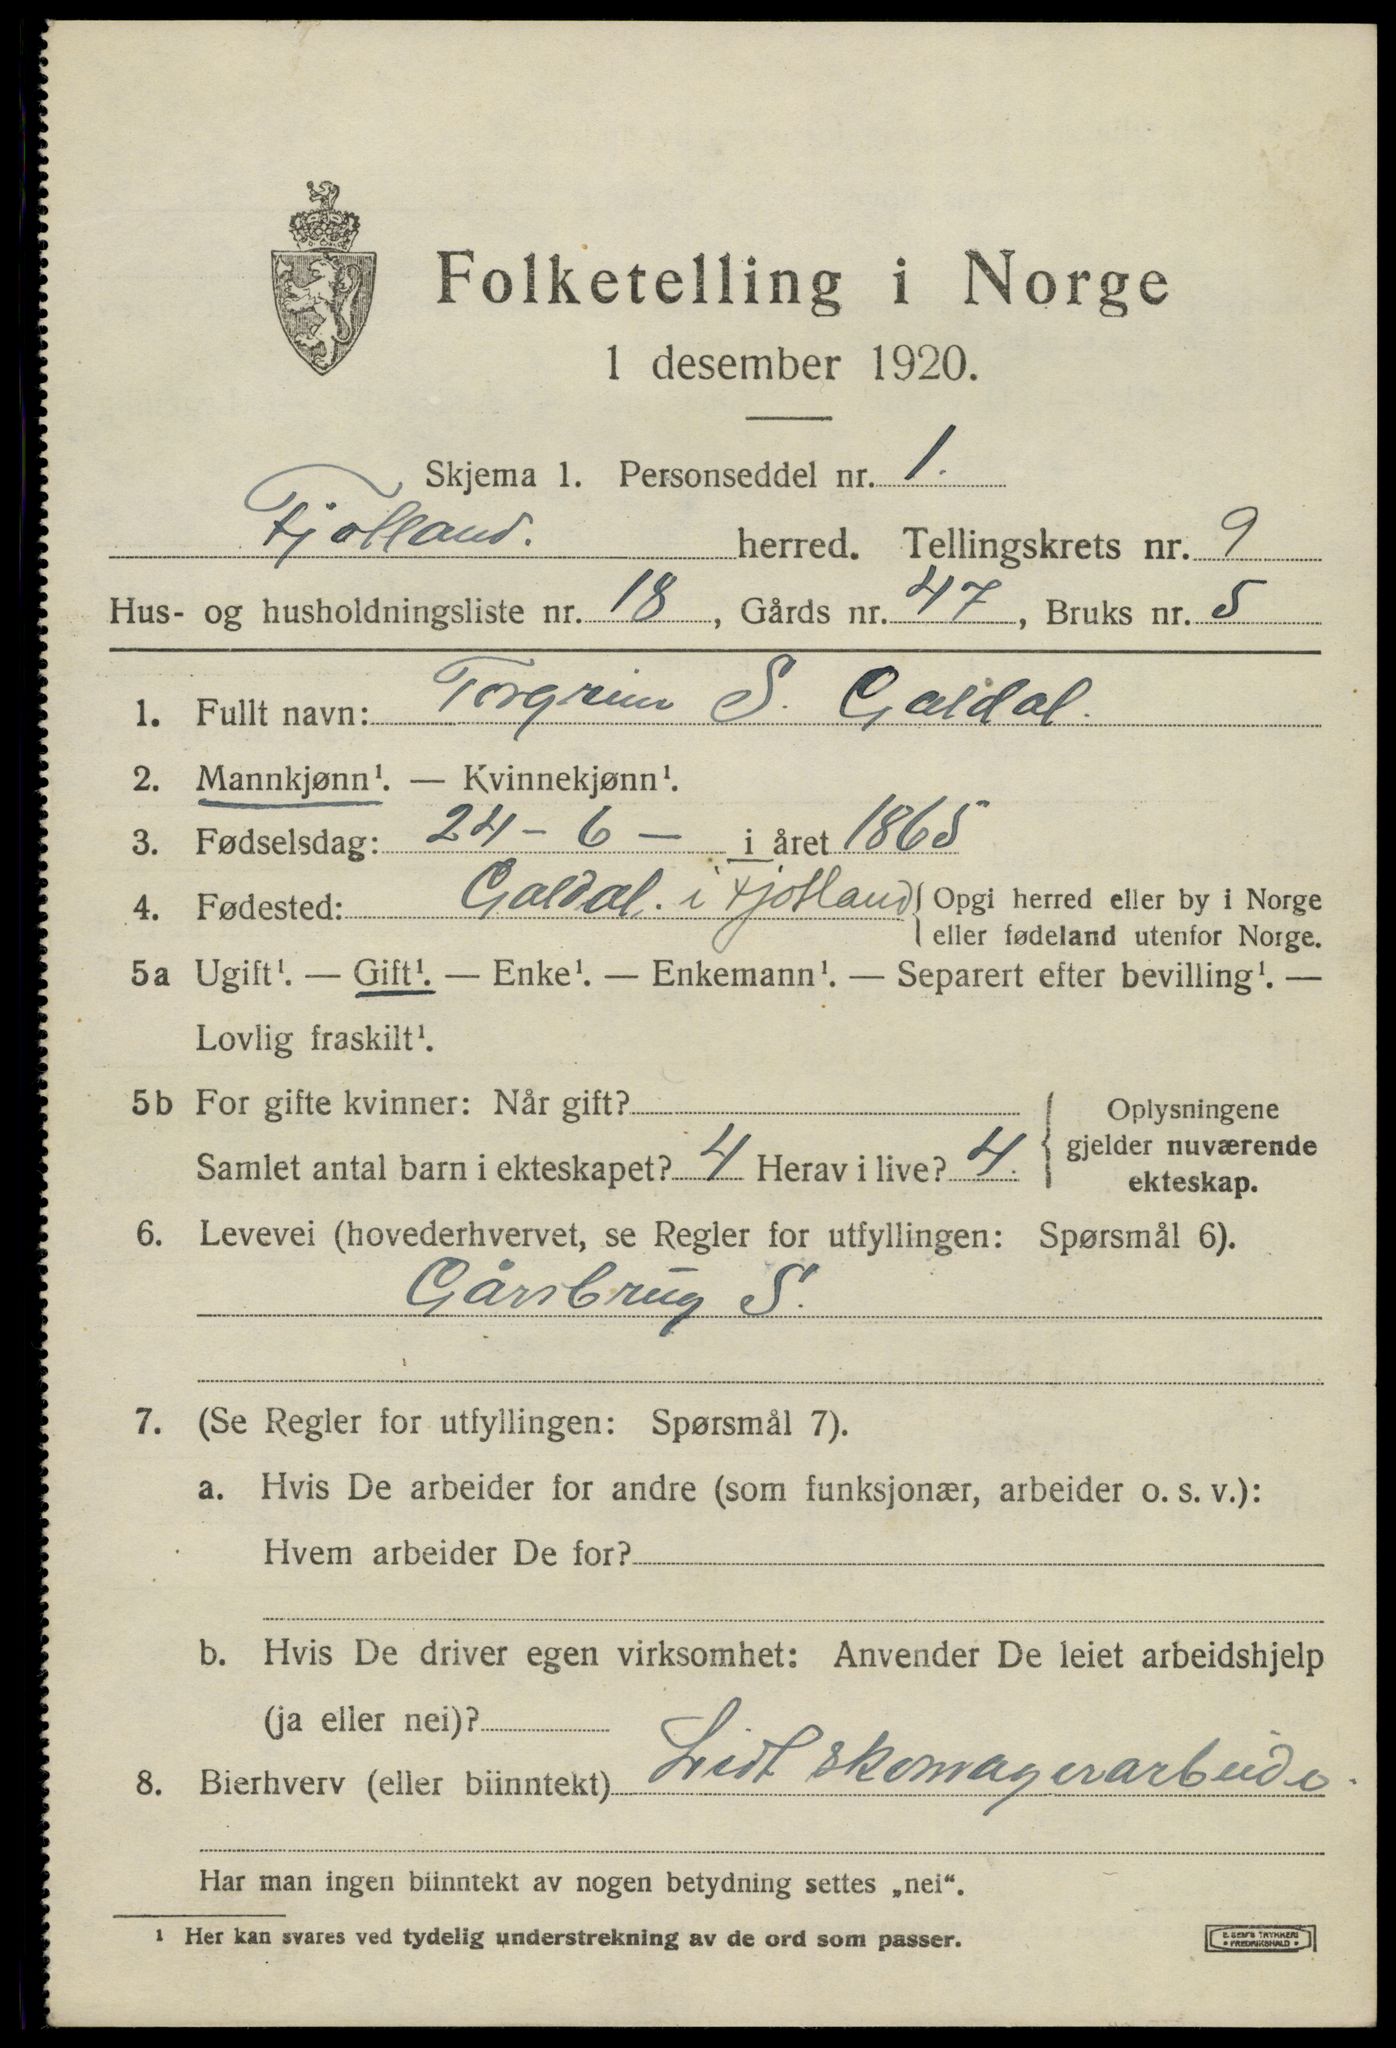 Folketelling i Norge
1 desember 1920.
Skjema 1. Personseddel nr. 1.
Fjotland. herred. Tellingskrets nr. 9
Hus- og husholdningsliste nr. 18, Gårds nr. 47, Bruks nr. 5
1. Fullt navn: Torgrim S. Galdal.
2. Mannkjønn¹. — Kvinnekjønn¹.
3. Fødselsdag: 24 - 6 - i året 1865
4. Fødested: Galdal. i Fjotland { Opgi herred eller by i Norge
eller fødeland utenfor Norge.
5a Ugift¹. — Gift¹. — Enke¹. — Enkemann¹. — Separert efter bevilling¹. —
Lovlig fraskilt¹.
5b For gifte kvinner: Når gift?
Samlet antal barn i ekteskapet? 4 Herav i live? 4.
Oplysningene
gjelder nuværende
ekteskap.
6. Levevei (hovederhvervet, se Regler for utfyllingen: Spørsmål 6).
Gårsbrug S.
7. (Se Regler for utfyllingen: Spørsmål 7).
a. Hvis De arbeider for andre (som funksjonær, arbeider o. s. v.):
Hvem arbeider De for?
b. Hvis De driver egen virksomhet: Anvender De leiet arbeidshjelp
(ja eller nei)?
8. Bierhverv (eller biinntekt) Lidt skomagerarbeide.
Har man ingen biinntekt av nogen betydning settes „nei“.
¹ Her kan svares ved tydelig understrekning av de ord som passer.
E. SEM'S TRYKKERI
• FREDRIKSHALD •